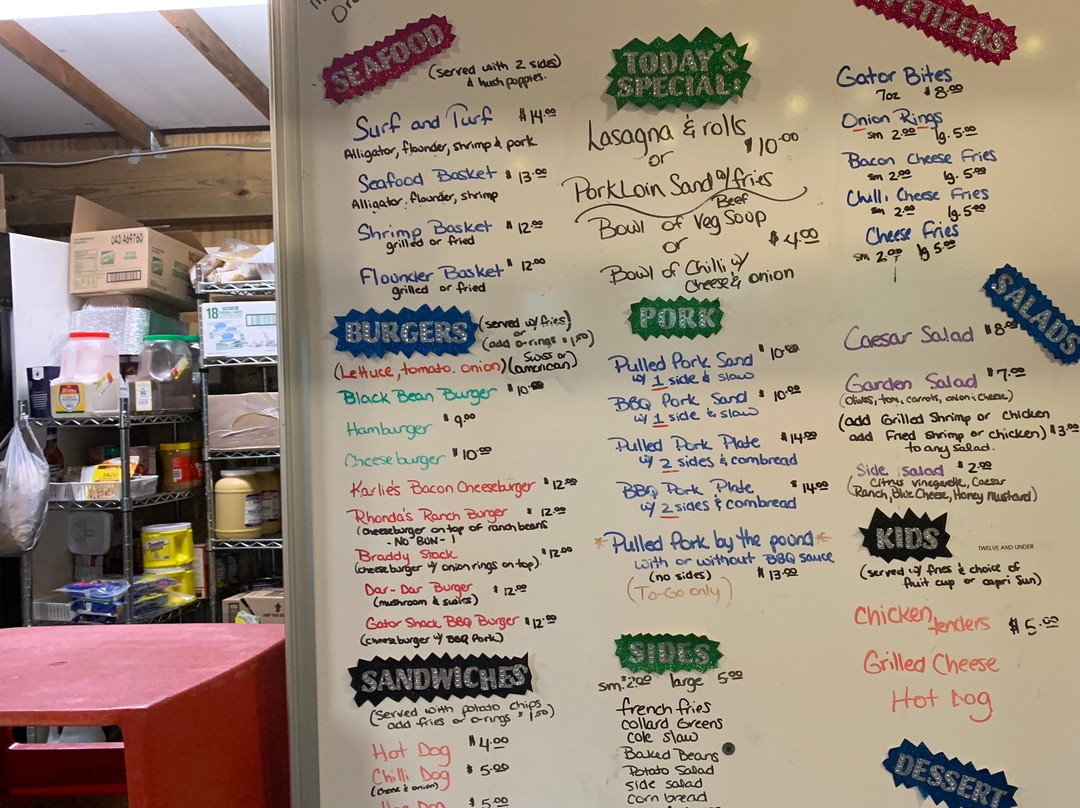 SEAFOOD
(served with 2 sides)
& hush puppies.
Surf and Turf $14.00
Alligator, flounder, shrimp & pork
Seafood Basket $13.00
Alligator, flounder, shrimp
Shrimp Basket $12.00
grilled or fried
Flounder Basket $12.00
grilled or fried
BURGERS
(served w/ fries)
or
(add o-rings $1.50)
(Lettuce, tomato. onion) (Swiss or american)
Black Bean Burger $10.00
Hamburger $9.00
Cheeseburger $10.00
Karlie's Bacon Cheeseburger $12.00
Rhonda's Ranch Burger $12.00
(cheeseburger on top of ranch beans
- NO BUN - )
Braddy Stack $12.00
(cheeseburger w/ onion rings on top)
Dar-Dar Burger $12.00
(mushroom & swiss)
Gator Shack BBQ Burger $12.00
(cheeseburger w/ BBQ Pork)
SANDWICHES
(Served with potato chips
add fries or o-rings $1.50)
Hot Dog $4.00
Chilli Dog $5.00
(cheese & onion)
Dog $5.00
TODAY'S
SPECIAL:
Lasagna & rolls
or $10.00
Pork Loin Sand w/ fries
Beef
Bowl of Veg Soop
or $4.00
Bowl of Chilli w/
Cheese & onion
PORK
Pulled Pork Sand $10.00
w/ 1 side & slaw
BBQ Pork Sand $10.00
w/ 1 side & slaw
Pulled Pork Plate $14.00
w/ 2 sides & cornbread
BBQ Pork Plate $14.00
w/ 2 sides & cornbread
*Pulled Pork by the pound*
with or without BBQ sauce
(no sides) $13.00
(To-Go only)
SIDES
sm. 2.00 large 5.00
french fries
collard Greens
cole slaw
Baked Beans
Potato Salad
side salad
corn bread
PETIZERS
Gator Bites
7oz $8.00
Onion Rings
sm 2.00 lg. 5.00
Bacon Cheese Fries
sm 2.00 lg. 5.00
Chilli Cheese Fries
sm 2.00 lg. 5.00
Cheese Fries
sm 2.00 lg 5.00
SALADS
Caesar Salad $8
Garden Salad $7.00
(Olives, tom, carrots, onion & cheese)
(add Grilled Shrimp or chicken
add Fried shrimp or chicken) $3.00
to any salad.
Side salad $2.00
(Citrus vinegarette, Caesar
Ranch, Blue Cheese, Honey Mustard)
KIDS
TWELVE AND UNDER
(served w/ fries & choice of
fruit cup or capri sun)
Chicken tenders $5.00
Grilled Cheese
Hot Dog
DESSERT
043 469760
18